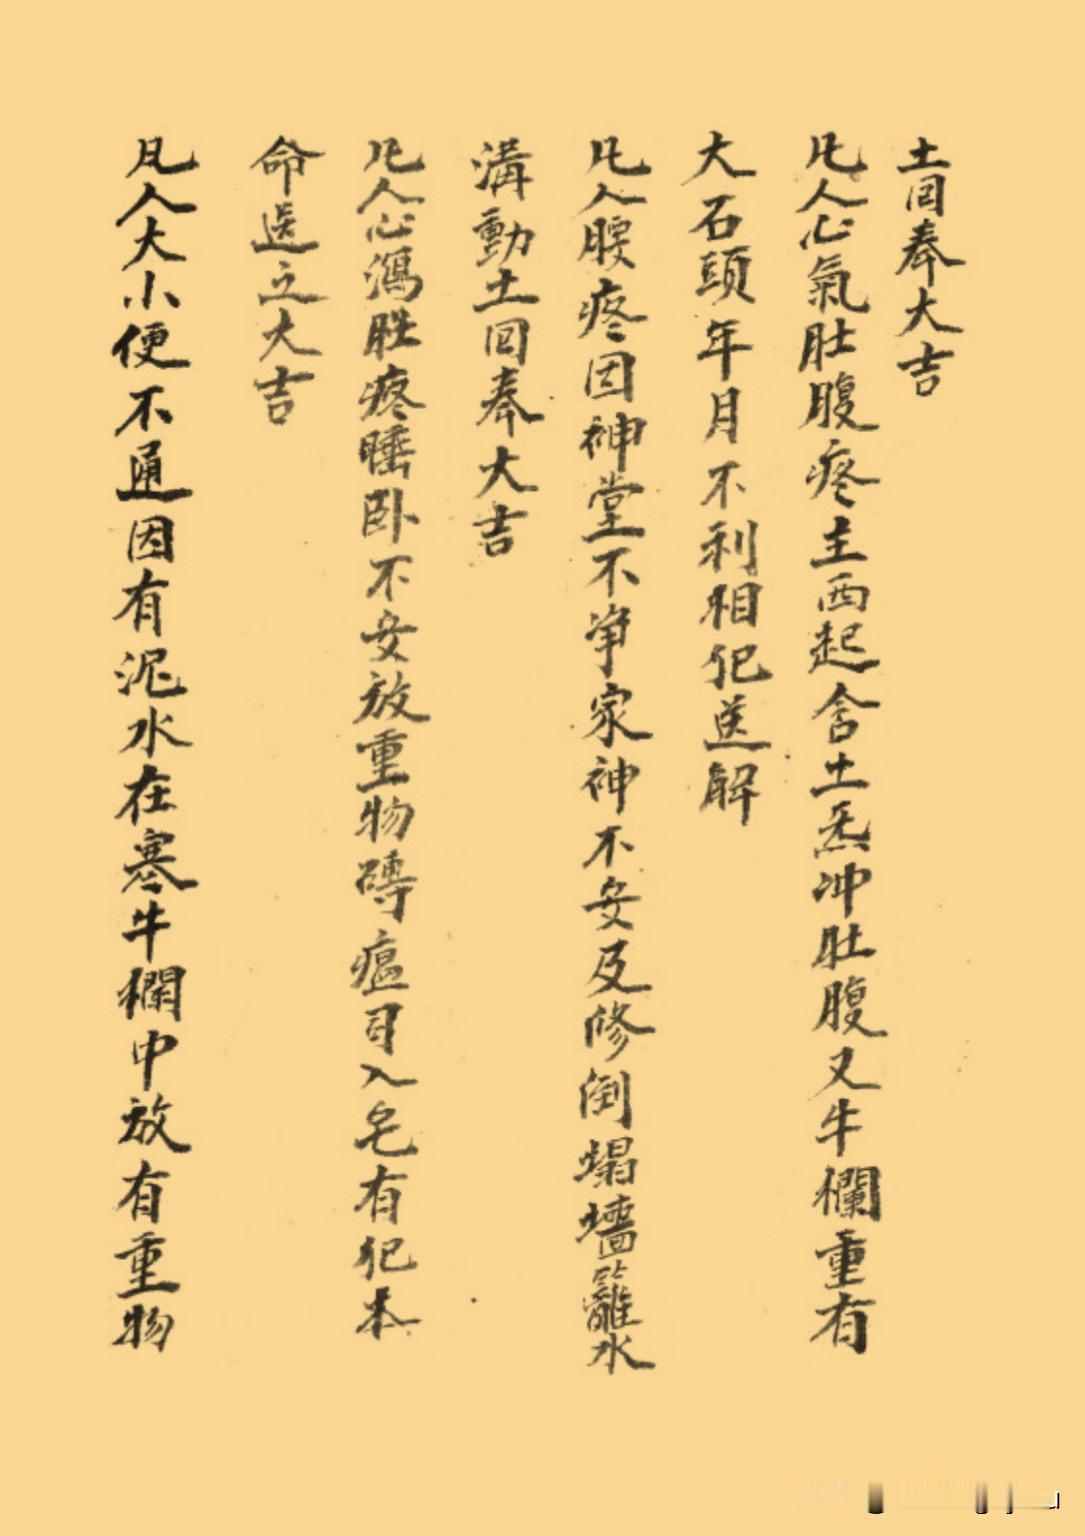 土囙奉大吉
凡人心氣肚腹疼主西起含土炁冲肚腹又牛欄重有
大石頭年月不利相犯送解
凡人腰疼因神堂不净家神不安及修倒塌墻籬水
溝動土囙奉大吉
凡人心瀉肚疼睡卧不安放重物磚瘟司入宅有犯本
命送之大吉
凡人大小便不通因有泥水在寒牛欄中放有重物